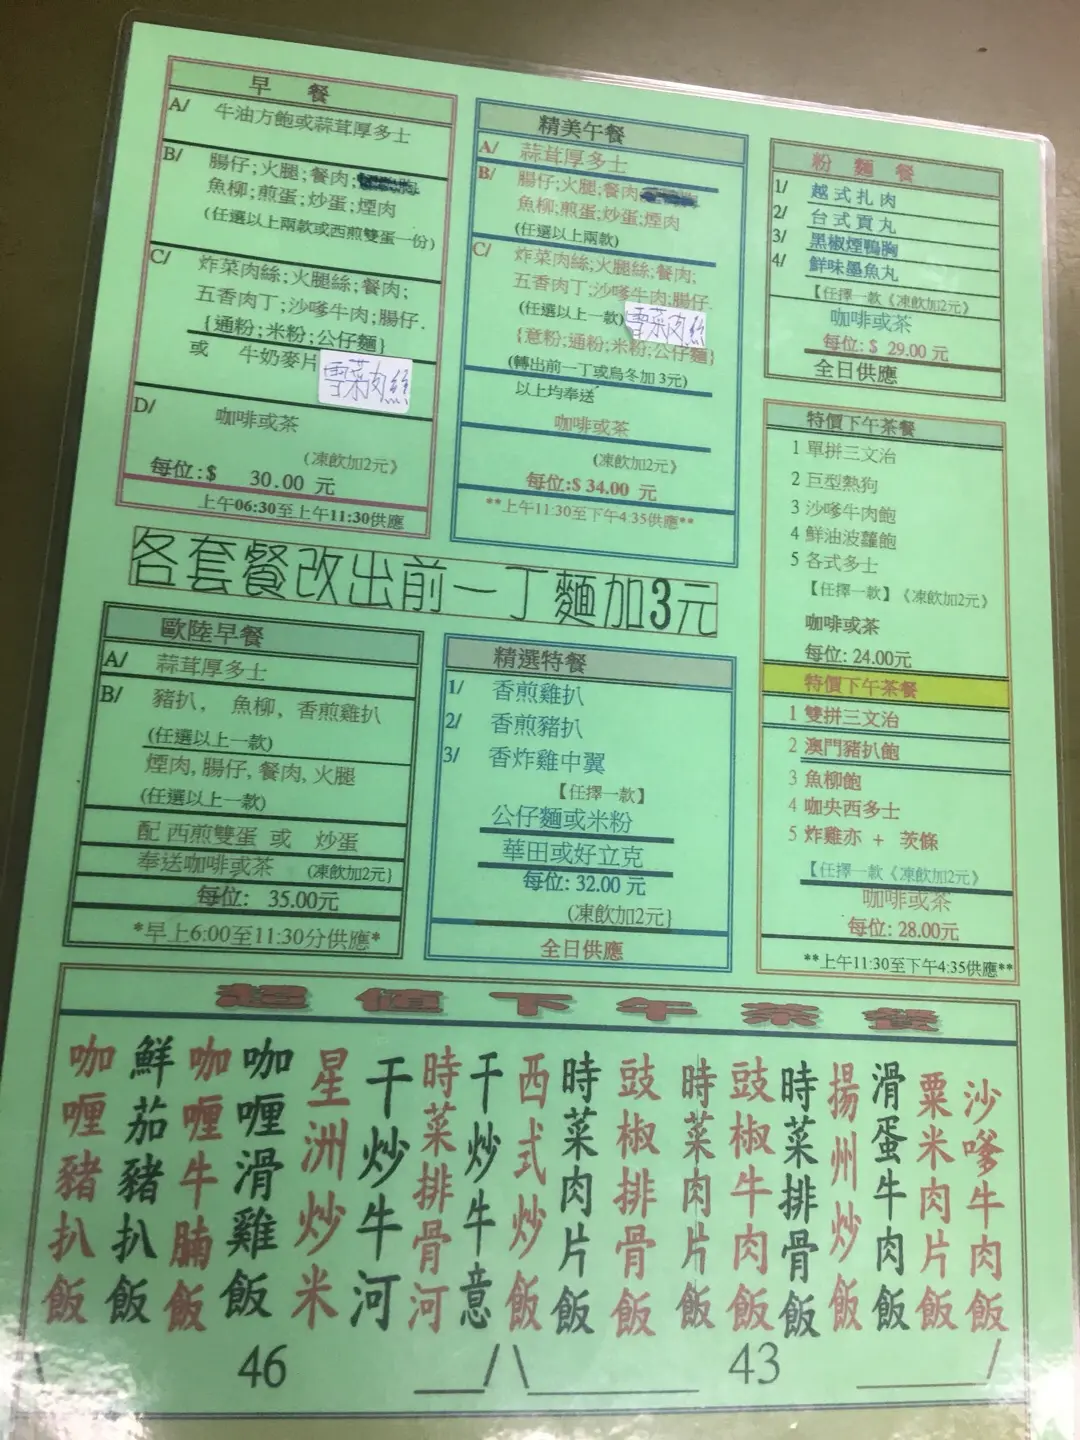 早 餐
A/ 牛油方飽或蒜茸厚多士
B/ 腸仔;火腿;餐肉;
魚柳;煎蛋;炒蛋;煙肉
(任選以上兩款或西煎雙蛋一份)
C/ 炸菜肉絲;火腿絲;餐肉;
五香肉丁;沙嗲牛肉;腸仔.
{通粉;米粉;公仔麵}
或 牛奶麥片
雪菜肉絲
D/ 咖啡或茶
(凍飲加2元》
每位:$ 30.00 元
上午06:30至上午11:30供應
精美午餐
A/ 蒜茸厚多士
B/ 腸仔;火腿;餐肉
魚柳;煎蛋;炒蛋;煙肉
(任選以上兩款)
C/ 炸菜肉絲;火腿絲;餐肉;
五香肉丁;沙嗲牛肉;腸仔.
(任選以上一款)
雪菜肉絲
{意粉;通粉;米粉;公仔麵}
(轉出前一丁或烏冬加 3元)
以上均奉送
咖啡或茶
(凍飲加2元》
每位:$ 34.00 元
**上午11:30至下午4:35供應**
粉 麵 餐
1/ 越式扎肉
2/ 台式貢丸
3/ 黑椒煙鴨胸
4/ 鮮味墨魚丸
【任擇一款《凍飲加2元》
咖啡或茶
每位: $ 29.00 元
全日供應
特價下午茶餐
1 單拼三文治
2 巨型熱狗
3 沙嗲牛肉飽
4 鮮油波蘿飽
5 各式多士
【任擇一款】《凍飲加2元》
咖啡或茶
每位: 24.00元
特價下午茶餐
1 雙拼三文治
2 澳門豬扒飽
3 魚柳飽
4 咖央西多士
5 炸雞亦 + 茨條
【任擇一款《凍飲加2元》
咖啡或茶
每位: 28.00元
**上午11:30至下午4:35供應**
各套餐改出前一丁麵加3元
歐陸早餐
A/ 蒜茸厚多士
B/ 豬扒, 魚柳, 香煎雞扒
(任選以上一款)
煙肉, 腸仔, 餐肉, 火腿
(任選以上一款)
配 西煎雙蛋 或 炒蛋
奉送咖啡或茶 (凍飲加2元}
每位: 35.00元
*早上6:00至11:30分供應*
精選特餐
1/ 香煎雞扒
2/ 香煎豬扒
3/ 香炸雞中翼
【任擇一款】
公仔麵或米粉
華田或好立克
每位: 32.00 元
(凍飲加2元}
全日供應
超值下午茶餐
咖喱豬扒飯
鮮茄豬扒飯
咖喱牛腩飯
咖喱滑雞飯
星洲炒米
干炒牛河
時菜排骨河
干炒牛意
西式炒飯
時菜肉片飯
豉椒排骨飯
時菜肉片飯
豉椒牛肉飯
時菜排骨飯
揚州炒飯
滑蛋牛肉飯
粟米肉片飯
沙嗲牛肉飯
\ 46 / \ 43 /